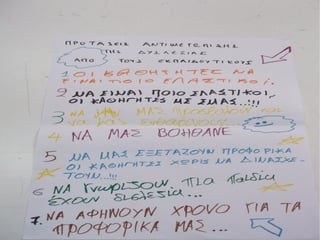 ΠΡΟΤΑΣΕΙΣ ΑΝΤΙΜΕΤΩΠΙΣΗΣ
ΤΗΣ ΔΥΣΛΕΞΙΑΣ
ΑΠΟ ΤΟΥΣ ΕΚΠΑΙΔΕΥΤΙΚΟΥΣ
1 ΟΙ ΚΑΘΗΓΗΤΕΣ ΝΑ
ΕΙΝΑΙ ΠΟΙΟ ΕΛΑΣΤΙΚΟΙ.
2 ΝΑ ΕΙΝΑΙ ΠΟΙΟ ΕΛΑΣΤΙΚΟΙ,
ΟΙ ΚΑΘΗΓΗΤΕΣ ΜΕ ΕΜΑΣ..!!!
3 ΝΑ ΜΗΝ ΜΑΣ ΠΡΟΣΒΑΛΟΥΝ ΚΑΙ
ΝΑ ΜΑΣ
4 ΝΑ ΜΑΣ ΒΟΗΘΑΝΕ
5 ΝΑ ΜΑΣ ΕΞΕΤΑΖΟΥΝ ΠΡΟΦΟΡΙΚΑ
ΟΙ ΚΑΘΗΓΗΤΕΣ ΧΩΡΙΣ ΝΑ
ΤΟΥΝ..!!
6 ΝΑ ΓΝΩΡΙΖΟΥΝ ΠΙΑ ΠΑΙΔΙΑ
ΕΧΟΥΝ ΔΙΣΛΕΞΙΑ...
7. ΝΑ ΑΦΗΝΟΥΝ ΧΡΟΝΟ ΓΙΑ ΤΑ
ΠΡΟΦΟΡΙΚΑ ΜΑΣ...